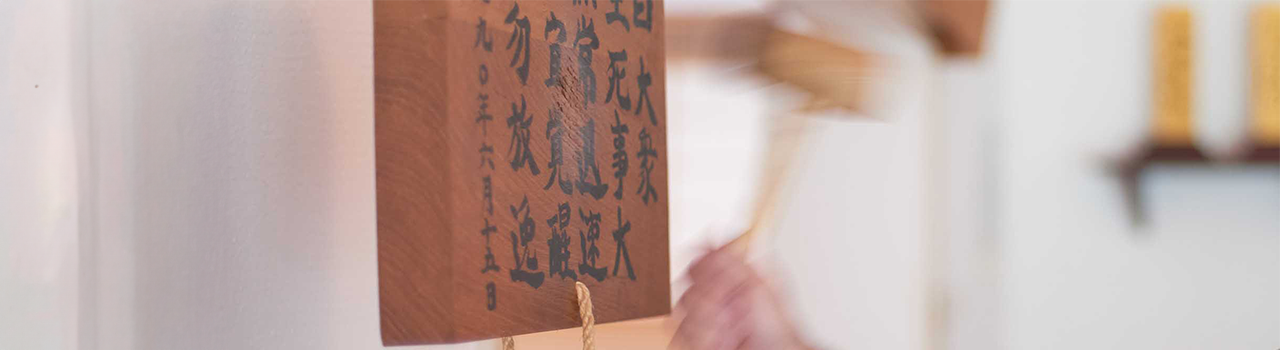 白大衆
生死事大
無常迅速
宜覚醒
勿放逸
九〇年六月十五日